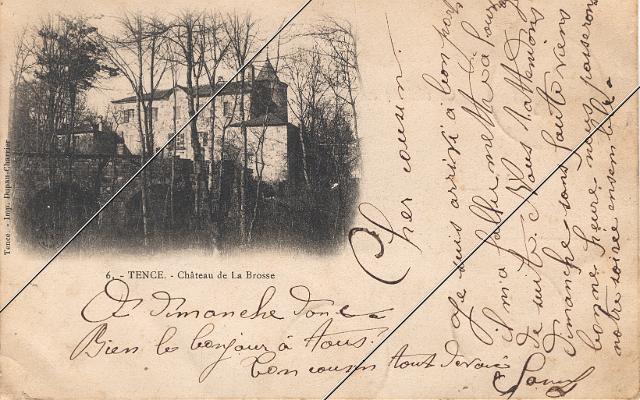 Tence. - Imp. Dupau-Charrier
6. - TENCE. - Château de La Brosse
Cher cousin
Je suis arrivé à bon port
il m'a fallu mettre à
de suite. Nous t'attendons
dimanche sans faute viens
bonne heure nous passerons
notre soirée ensemble.
A dimanche donc
Bien le bonjour à tous.
ton cousin tout dévoué